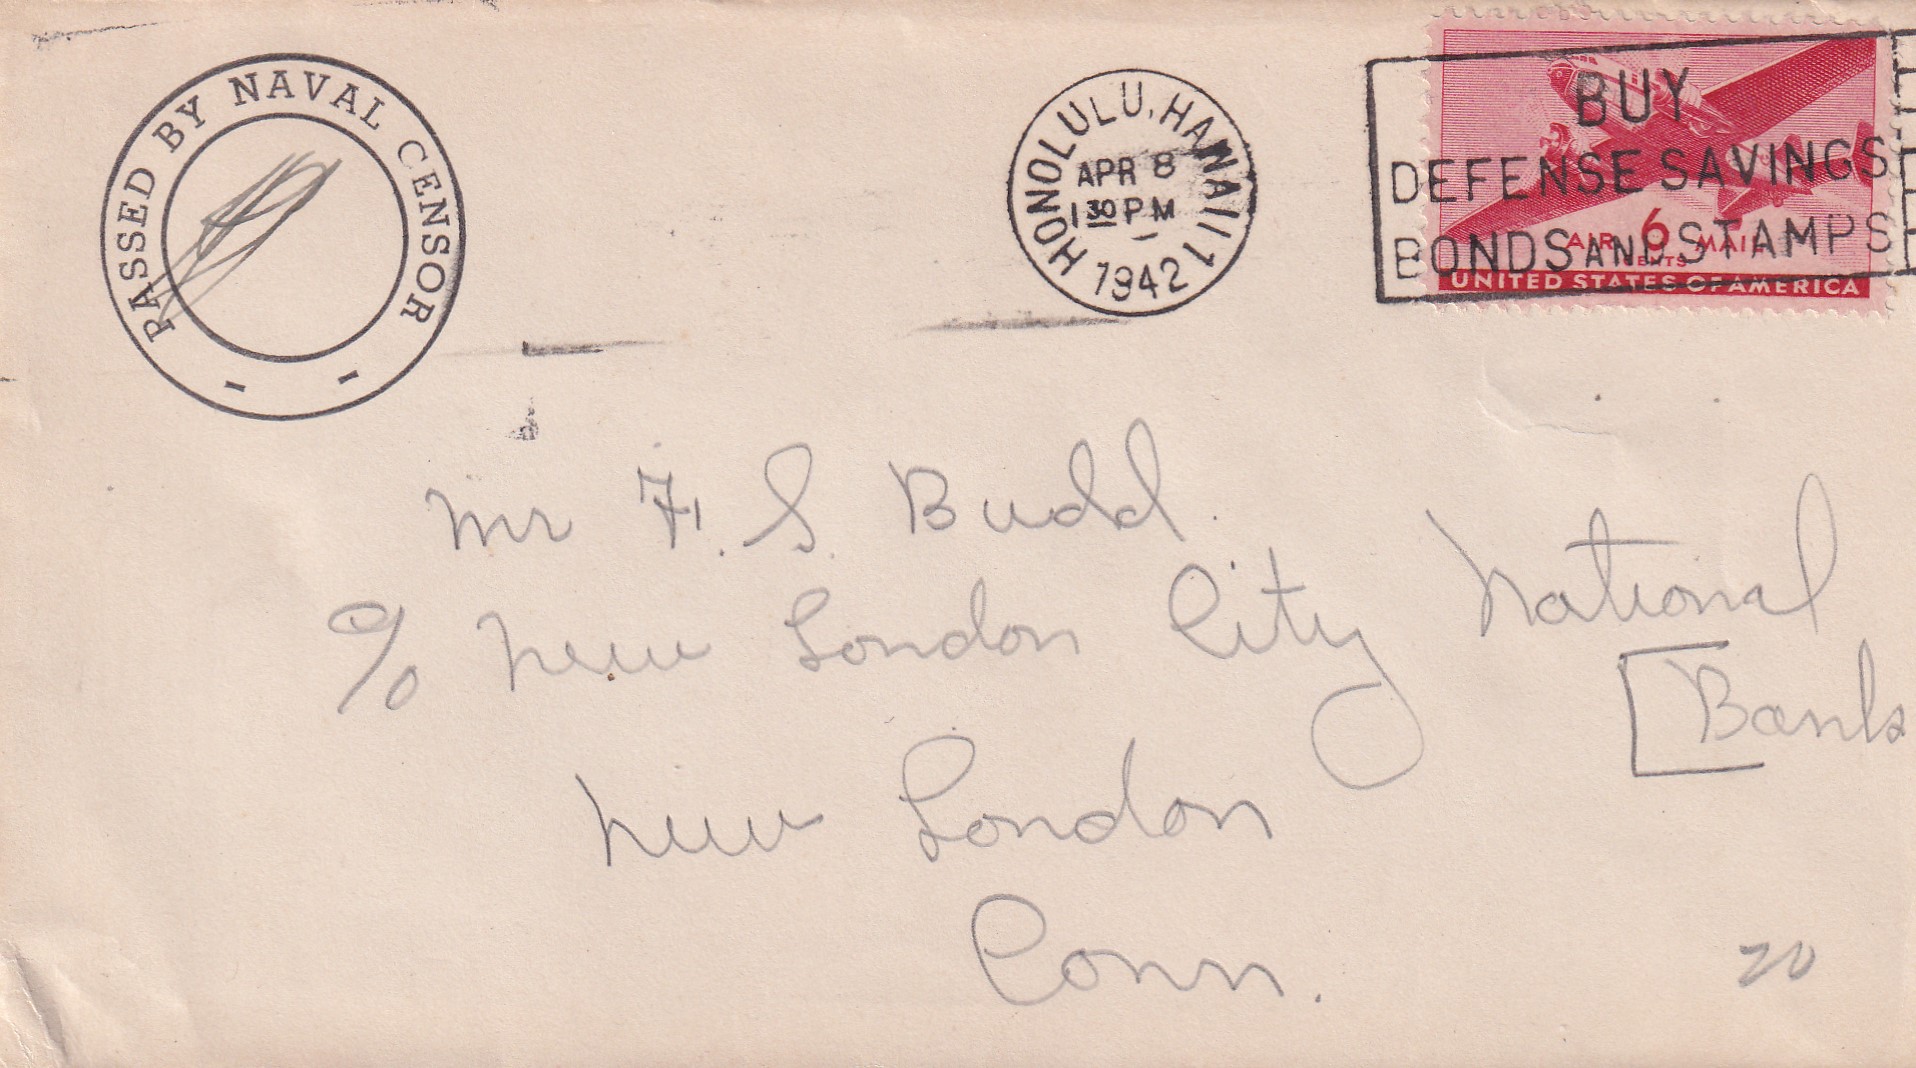 PASSED BY NAVAL CENSOR
HONOLULU, HAWAII 1
APR 8
1 30 PM
1942
BUY
DEFENSE SAVINGS
BONDS AND STAMPS
AIR 6 MAIL
CENTS
UNITED STATES OF AMERICA
Mr F. S. Budd.
c/o New London City National
Bank
New London
Conn.
20